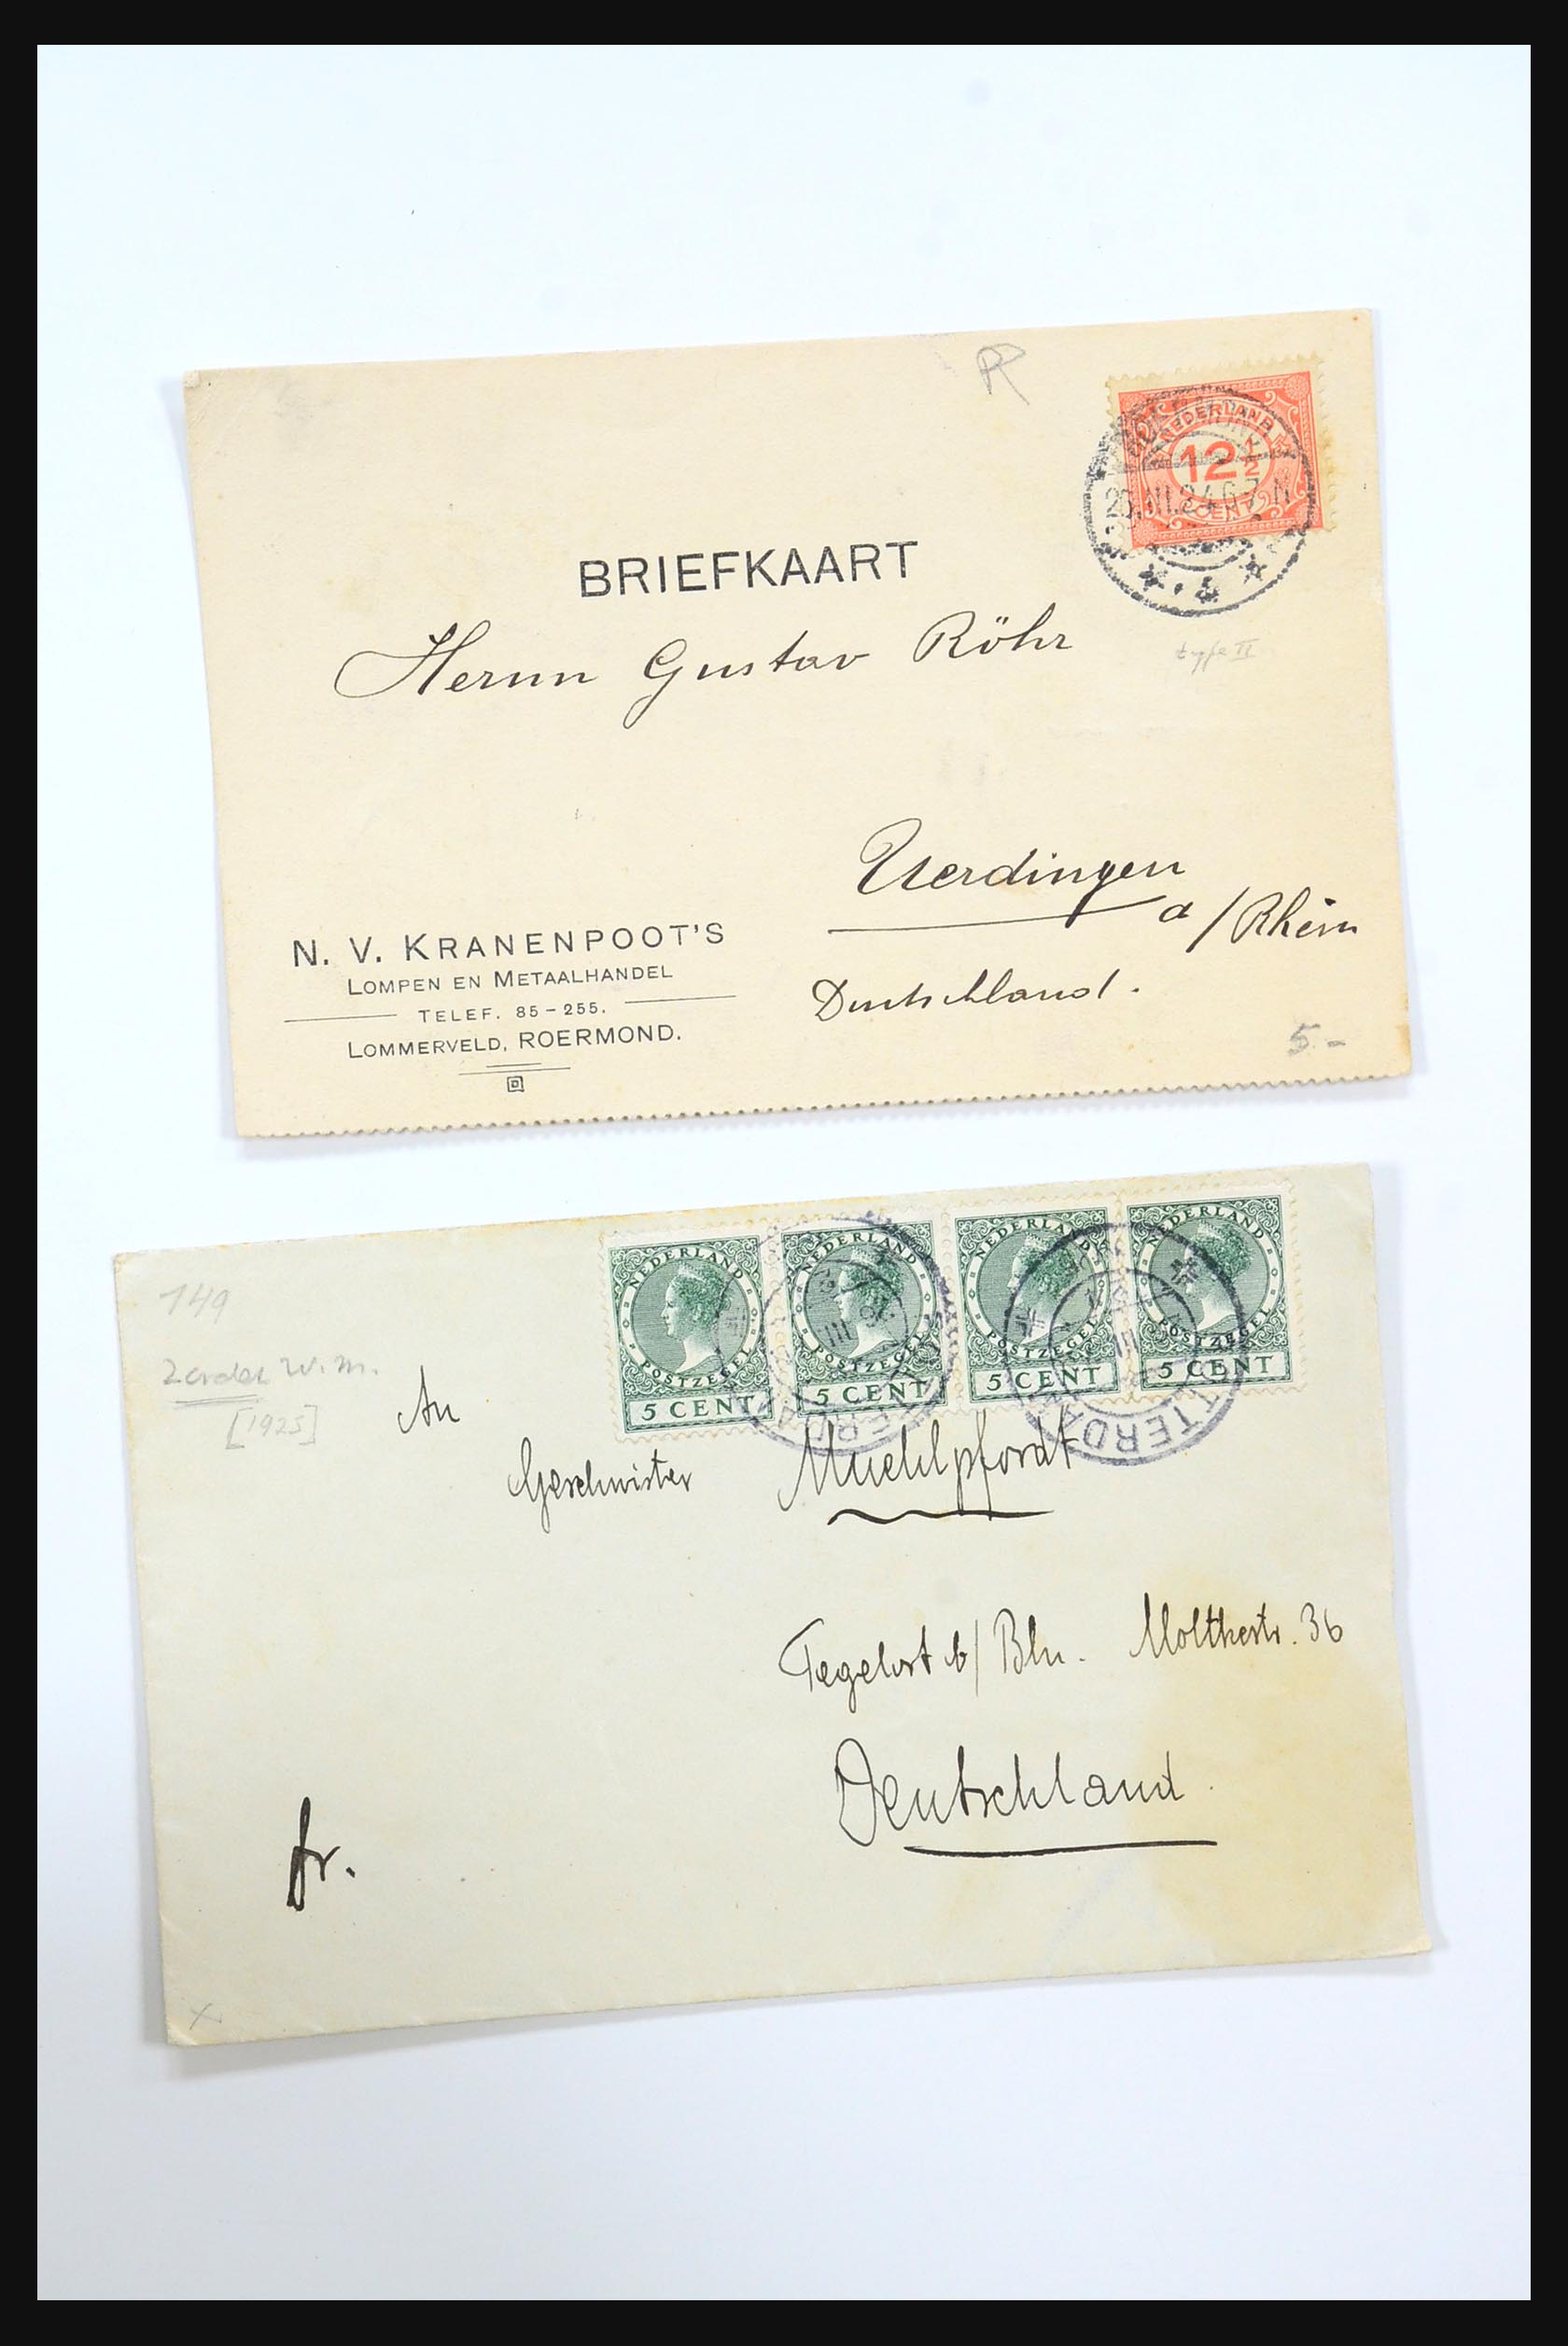 R
NEDERLAND
12 1/2
CENT
BRIEFKAART
Herrn Gustav Röhr
type II
Uerdingen
a/Rhein
Deutschland.
N. V. KRANENPOOT'S
LOMPEN EN METAALHANDEL
TELEF. 85-255.
LOMMERVELD, ROERMOND.
5.-
NEDERLAND NEDERLAND NEDERLAND NEDERLAND
POSTZEGEL POSTZEGEL POSTZEGEL POSTZEGEL
5 CENT 5 CENT 5 CENT 5 CENT
149
Zonder W.M.
[1925]
An
Geschwister Muehlpfordt
Tegelort b/ Bln. Moltkestr. 36
Deutschland.
fr.
x